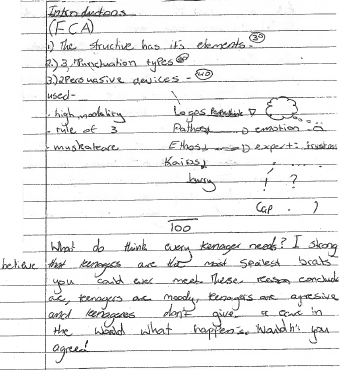 Introductions
(FCA)
1) The structure has it's elements. 30
2.) 3 Punctuation types
3.) 2 Persuasive devices - 40
used -
- high modality Logos
- rule of 3 Pathos → emotion
- muskateare Ethos → expert:
Kairos
hurry ! ?
Cap . )
Too
What do think every teenager needs? I strong
believe that teenagers are the most spoilest brats
you could ever meet. These reason conclude
are, teengers are moody, teengers are agresive
and teenageres don't give a care in
the world what happen's. Wouldn't you
agree!